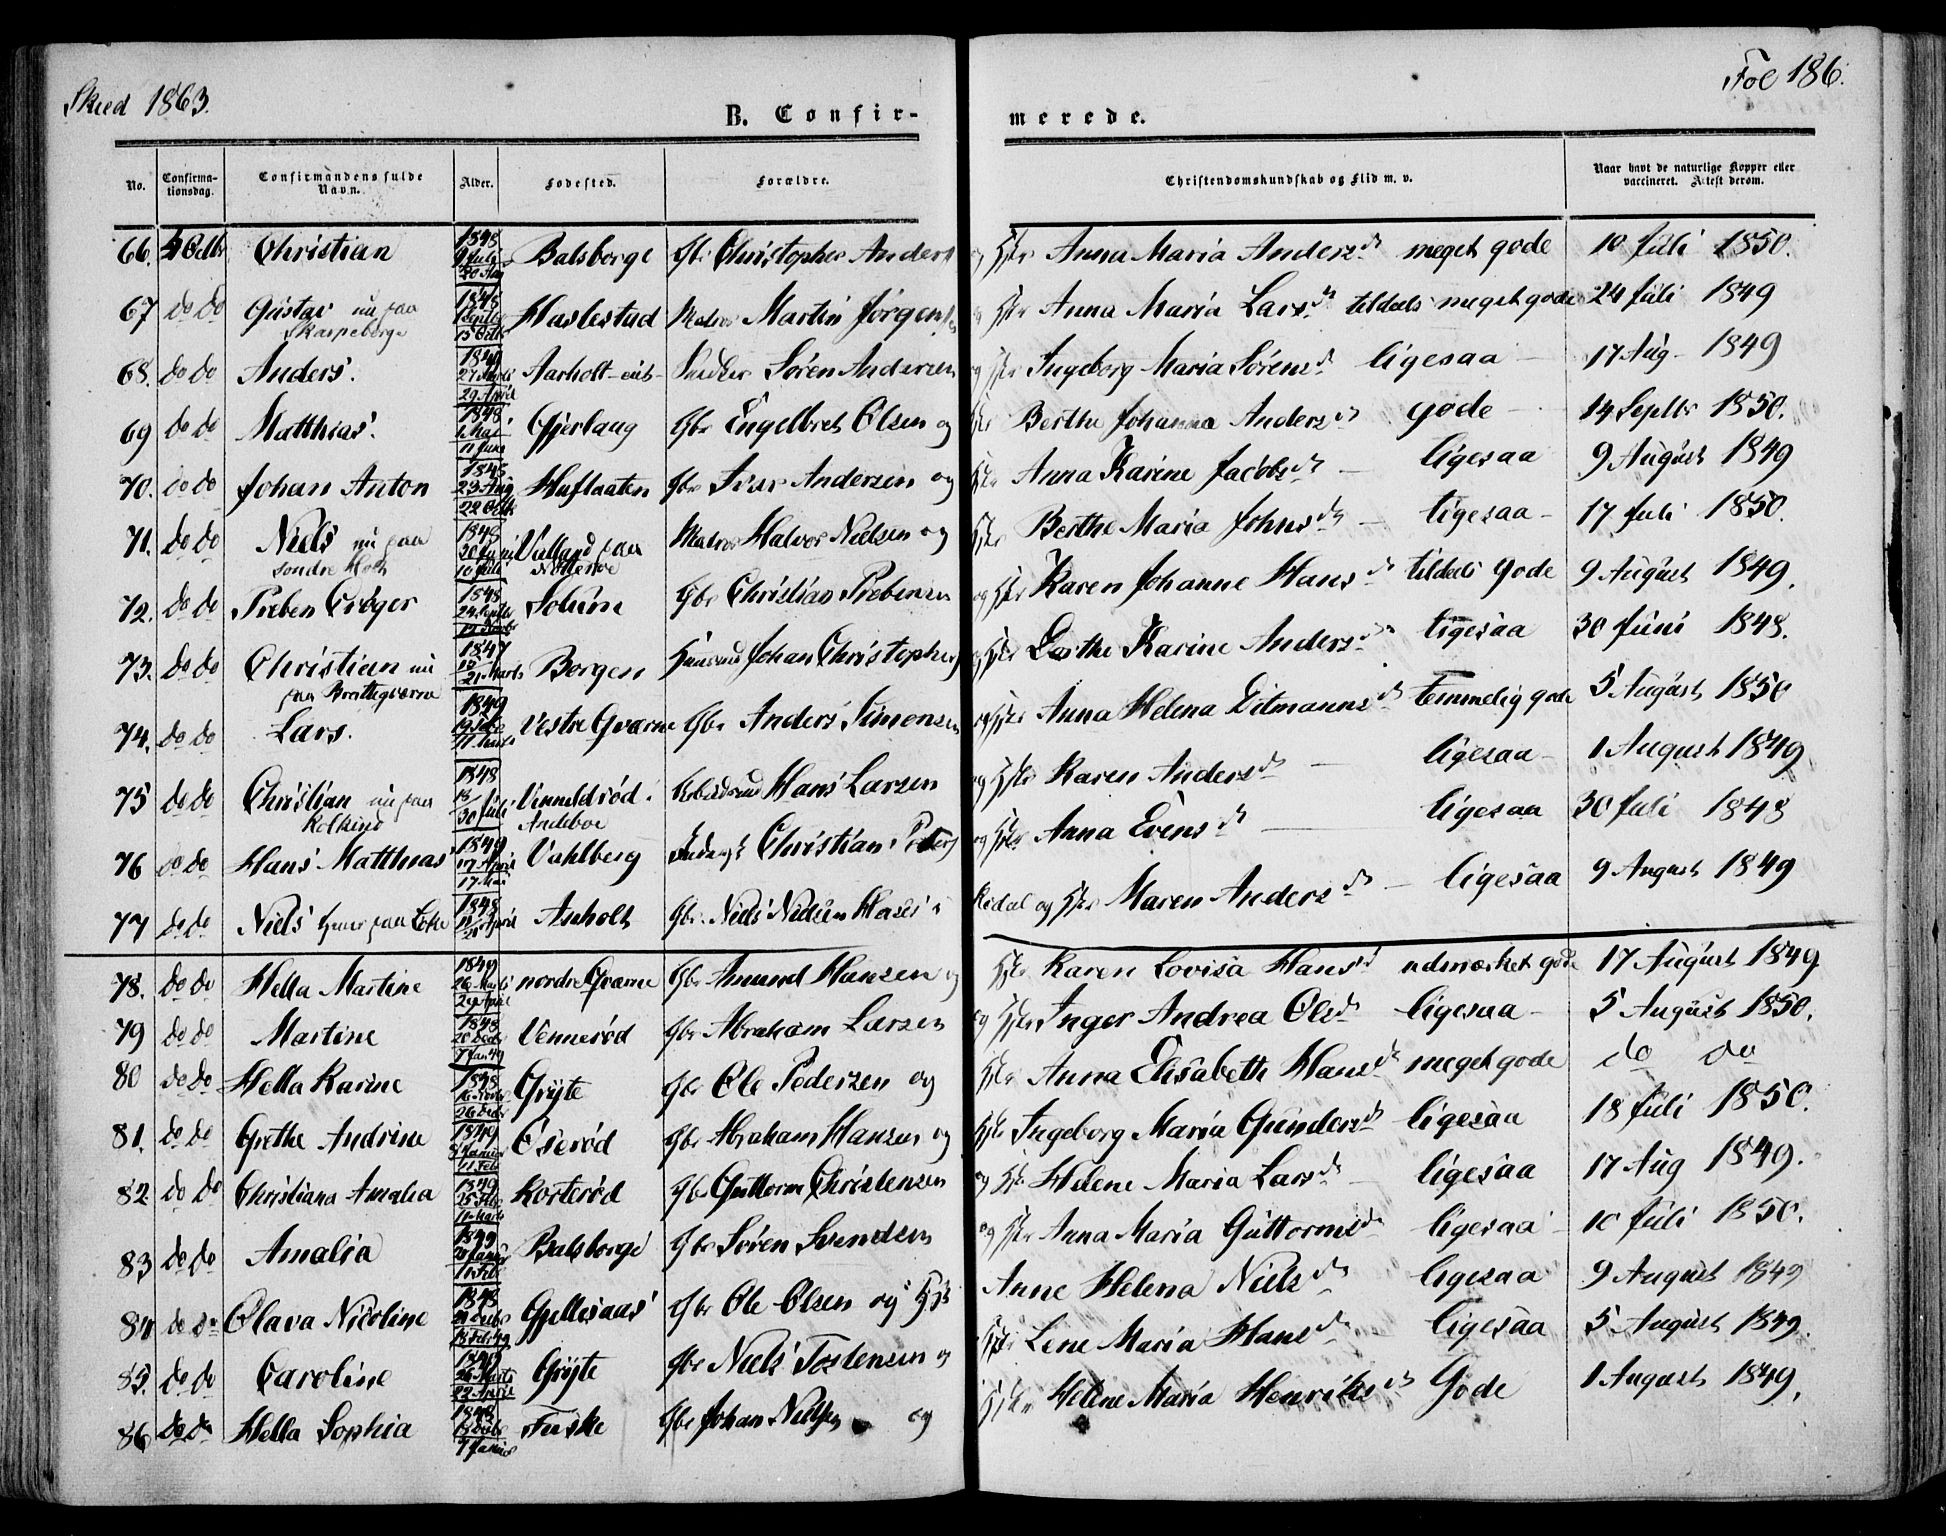 Skeed 1863.
Fol 186.
B. Confir-
merede.
No. Confirma-tionsdag. Confirmandens fulde Navn. Alder. Fødested. Forældre. Christendomskundskab og Flid m. v. Naar havt de naturlige Kopper eller vaccineret. Attest derom.
66. 4 Octbr Christian 1848 9 Juli 20 Aug Balsborge Gbr Christopher Anders og Hstr Anna Maria Andersd. meget gode 10 Juli 1850.
67 do do Gustav nu paa Skarpeborge 1848 13 Octb Haslestad Matros Martin Jørgensen og Hstr Anna Maria Larsd. tildeels meget gode 24 Juli 1849
68. do do Anders. 1849 29 April Aarholt-eie- Snedker Søren Andersen og Hstr Ingeborg Maria Sørensd. ligesaa 17 Aug 1849
69 do do Matthias. 1848 6 Mai 11 Juni Gjerlaug Gbr Engelbret Olsen og Hstr Berthe Johanna Andersd. gode 14 Septbr 1850.
70. do do Johan Anton 1848 23 Aug 22 Octb Huflaaten Gbr Iver Andersen og Hstr Anna Karine Jacobsd. ligesaa 9 August 1849
71. do do Niels nu paa søndre Holt 1848 30 Juni 10 Juli Valland paa Nøtterøe Matros Halvor Nielsen og Hstr Berthe Maria Johnsd. ligesaa 17 Juli 1850.
72. do do Preben Crøger 1848 24 Septbr 12 Novbr Solum Gbr Christian Prebensen og Hstr Karen Johanne Hansd. tildeels gode 9 August 1849.
73. do do Christian nu paa Brattegvarne 1847 21 Marts Borgen Huusmd Johan Christophers og Hstr Dorthe Karine Andersd. ligesaa 30 Juni 1848.
74. do do Lars. 1849 11 Marts Vestre Gvarne Gbr Anders Simonsen og Hstr Anna Helena Ditmannsd. temmelig gode 5 August 1850
75 do do Christian nu paa Kolkind 1848 30 Juli Vinneldrød i Andeboe Arbeidsmd Hans Larsen og Hstr Karen Andersd. ligesaa 1 August 1849
76 do do Hans Matthias 1849 17 April 17 Mai Vahlberg Christian Peders og Hstr Anna Evensd. ligesaa 30 Juli 1848
77 do do Niels 1848 April Anholt Gbr. Niels Nielsen Hases i Rødal og Hstr Maren Andersd. ligesaa 9 August 1849
78. do do Hella Martine 1849 26 Marts 29 April nordre Gvarne Gbr Amund Hansen og Hstr Karen Lovisa Hansd udmærket gode 17 August 1849
79 do do Martine 1848 20 Decbr 7 Jan 49 Vennerød Gbr Abraham Larsen og Hstr Inger Andrea Olsd. ligesaa 5 August 1850.
80 do do Hella Karine 1848 26 Decbr Gryte Gbr Ole Pedersen og Hstr Anna Elisabeth Hansd. meget gode do do
81. do do Grethe Andrine 1849 8 Januar 11 Feb Oserød Gbr Abraham Hansen og Hstr Ingeborg Maria Gundersd. ligesaa 18 Juli 1850.
82 do do Christiana Amalia 1849 25 Febr 11 Marts Korterød Gbr Guttorm Christensen og Hstr Helene Maria Larsd. ligesaa 17 Aug 1849.
83 do do Amalia 1849 Januar 11 Feb Balsborge Gbr Søren Svendsen og Hstr Anna Maria Guttormsd. ligesaa 10 Juli 1850.
84 do do Olava Nicoline 1848 Decbr 18 Feb 49 Gjellesaas Gbr Ole Olsen og Hst Anne Helena Nielsd. ligesaa 9 August 1849
85. do do Caroline 1849 26 Marts 22 April Gryte Gbr Niels Tostensen og Hstr Lene Maria Hansd. ligesaa 5 August 1849.
86 do do Hella Sophia 1848 18 Decbr 7 Januar Fuske Gbr Johan Nielsen og Hstr Helene Maria Henriksd. Gode 1 August 1849.